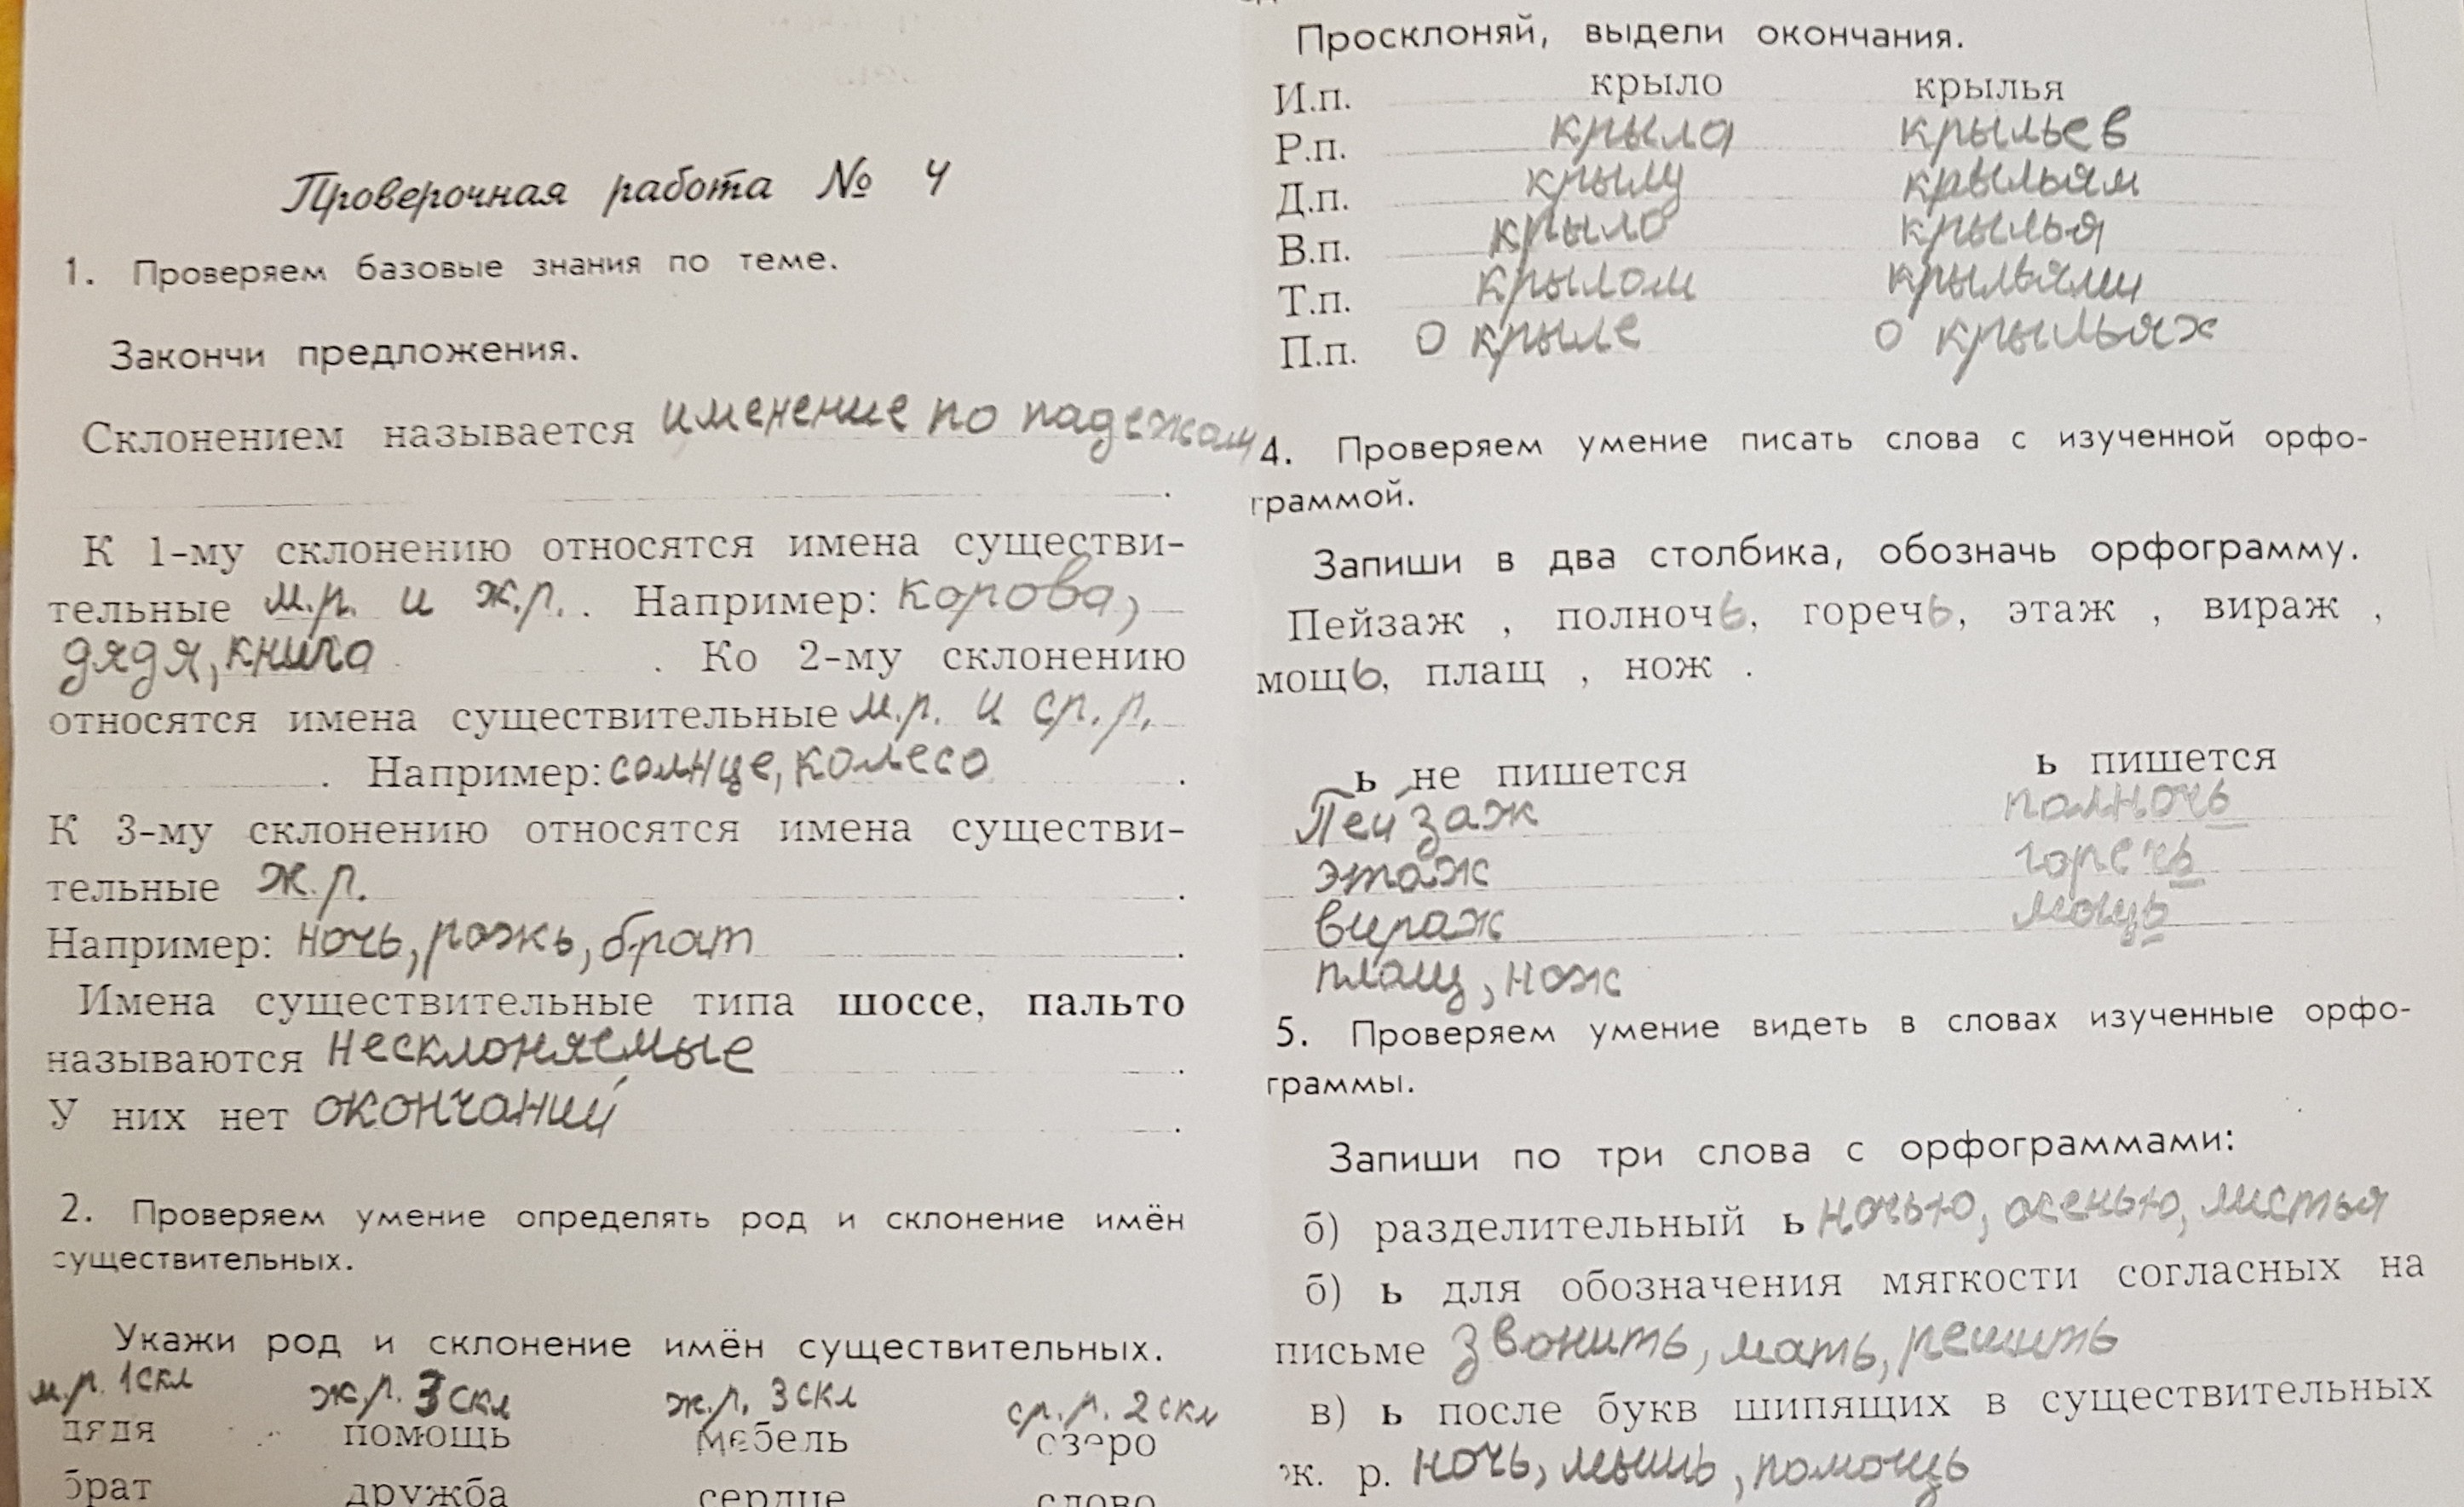 Проверочная работа № 4
1. Проверяем базовые знания по теме.
Закончи предложения.
Склонением называется именение по падежам
.
К 1-му склонению относятся имена существи-
тельные м.р. и ж.р. . Например: корова,
дядя, книга . Ко 2-му склонению
относятся имена существительные м.р. и ср.р.
. Например: солнце, колесо .
К 3-му склонению относятся имена существи-
тельные ж.р. .
Например: ночь, рожь, брат .
Имена существительные типа шоссе, пальто
называются несклоняемые .
У них нет окончаний .
2. Проверяем умение определять род и склонение имён
существительных.
Укажи род и склонение имён существительных.
м.р. 1скл ж.р. 3скл ж.р. 3скл ср.р. 2скл
дядя помощь мебель озеро
брат дружба сердце слово
Просклоняй, выдели окончания.
И.п. крыло крылья
Р.п. крыла крыльев
Д.п. крылу крыльям
В.п. крыло крылья
Т.п. крылом крыльями
П.п. о крыле о крыльях
4. Проверяем умение писать слова с изученной орфо-
граммой.
Запиши в два столбика, обозначь орфограмму.
Пейзаж , полночь, горечь, этаж , вираж ,
мощь, плащ , нож .
ь не пишется ь пишется
Пейзаж полночь
этаж горечь
вираж мощь
плащ, нож
5. Проверяем умение видеть в словах изученные орфо-
граммы.
Запиши по три слова с орфограммами:
б) разделительный ь ночью, осенью, листья
б) ь для обозначения мягкости согласных на
письме звонить, мать, решить
в) ь после букв шипящих в существительных
ж. р. ночь, мышь, помощь